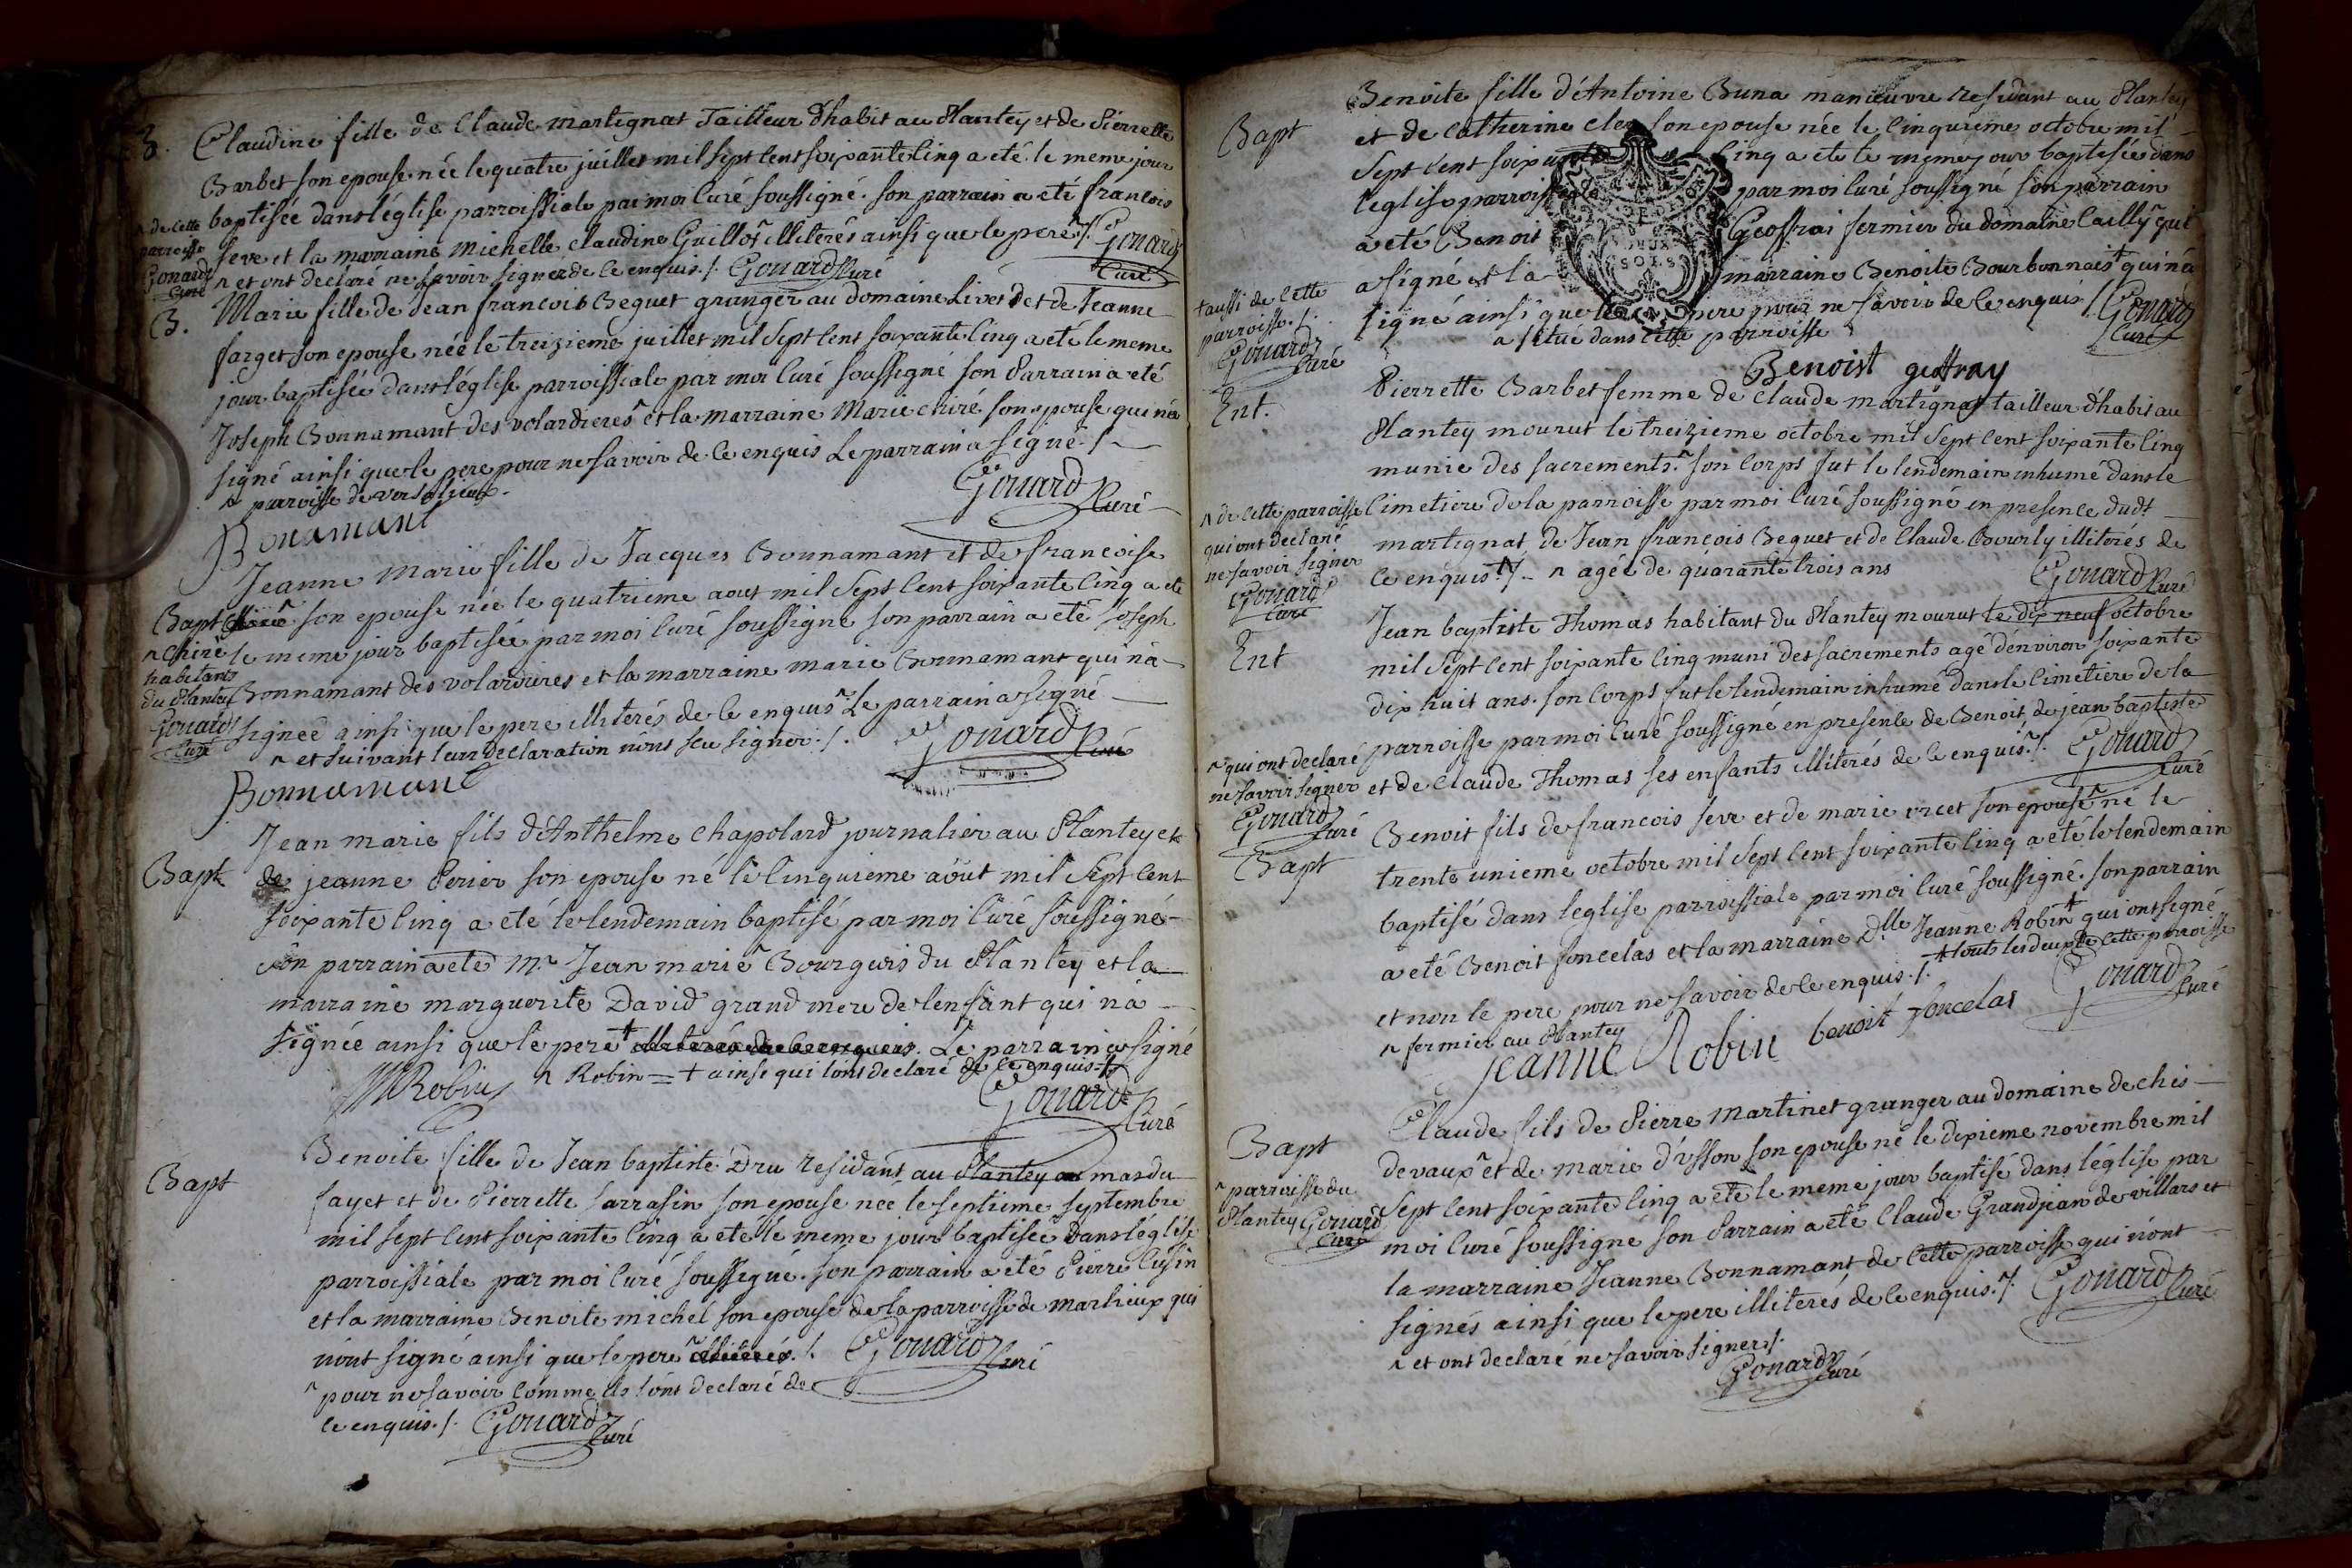 B.
Claudine fille de Claude martignat Tailleur d'habit au Plantey et de Pierrette
Barbet son epouse née le quatre juillet mil sept cent soixante cinq a eté le meme jour
baptisée dans l'église parroissiale par moi Curé soussigné. son parrain a eté francois
^ de cette parroisse
Gonard Curé
seve et la marraine michelle claudine Guillot^ illiterés ainsi que le pere ./. Gonard Curé
^ et ont declaré ne savoir signer de ce enquis ./. Gonard Curé
B.
Marie fille de Jean francois Beguet granger au domaine Livet et de Jeanne
farget son epouse née le treizieme juillet mil sept cent soixante cinq a eté le meme
jour baptisée dans l'église parroissiale par moi Curé soussigné son Parrain a eté
Joseph Bonnamant des volardieres^ et la marraine Marie chiré son epouse qui n'a
signé ainsi que le pere pour ne savoir de ce enquis Le parrain a signé ./.
^ parroisse de versalieux. Gonard Curé
Bonamant
Jeanne Marie fille de Jacques Bonnamant et de francoise
Bapt
son epouse née le quatrieme aout mil sept cent soixante cinq a eté
^ chiré
habitants
du Plantey
Gonard
Curé
le meme jour baptisée par moi Curé soussigné son parrain a eté Joseph
Bonnamant des volardieres et la marraine marie Bonnamant qui n'a
signée ainsi que le pere illiterés de ce enquis^ Le parrain a signé
^ et suivant leur declaration n'ont seu signer ./. Gonard Curé
Bonnamant
Jean marie fils d'Anthelme Chapolard journalier au Plantey et
Bapt
de jeanne Perier son epouse né le cinquieme aout mil sept cent
soixante cinq a eté le lendemain baptisé par moi Curé soussigné
son parrain a eté Mr. Jean marie^ Bourgeois du Plantey et la
marraine marguerite David grand mere de l'enfant qui n'a
signée ainsi que le pere + illiterés de ce enquis. Le parrain a signé
^ Robin = + ainsi qu'ils ont declaré de ce enquis ./.
Robin Gonard Curé
Bapt
Benoite fille de Jean baptiste Dru residant au Plantey au mas du
fayet et de Pierrette sarrasin son epouse née le septieme septembre
mil sept cent soixante cinq a eté le meme jour baptisée dans l'église
parroissiale par moi Curé soussigné. son parrain a eté Pierre Cusin
et la marraine Benoite michel son epouse de la parroisse de marlieux qui
n'ont signé ainsi que le pere^ illiterés ./. Gonard Curé
^ pour ne savoir comme ils l'ont declaré de
ce enquis ./. Gonard Curé
Bapt
Benoite fille d'Antoine Buna manieuvre residant au Plantey
et de Catherine son epouse née le cinquieme octobre mil
sept cent soixante cinq a eté le meme jour baptisée dans
l'eglise parroissiale par moi Curé soussigné son parrain
a eté Benoit Geoffrai fermier du domaine Cailly^ qui
a signé et la marraine Benoite Bourbonnais+ qui n'a
+ aussi de cette
parroisse ./.
Gonard
Curé
signé ainsi que le pere pour ne savoir de ce enquis ./. Gonard Curé
^ situé dans cette parroisse
Benoist geffray
Ent.
Pierrette Barbet femme de Claude martignat tailleur d'habit au
Plantey mourut le treizieme octobre mil sept cent soixante cinq
munie des sacrements^ son corps fut le lendemain inhumé dans le
^ de cette parroisse
qui ont declaré
ne savoir signer
Gonard
Curé
cimetiere de la parroisse par moi Curé soussigné en presence dudt
martignat de Jean françois Beguet et de Claude Bourly illiterés de
ce enquis ./. ^ agée de quarante trois ans Gonard Curé
Ent
Jean baptiste Thomas habitant du Plantey mourut le dix neuf octobre
mil sept cent soixante cinq muni des sacrements agé d'environ soixante
dix huit ans. son corps fut le lendemain inhumé dans le cimetiere de la
parroisse par moi Curé soussigné en presence de Benoit, de jean baptiste
^ qui ont declaré
ne savoir signer
Gonard
Curé
et de Claude Thomas ses enfants illiterés de ce enquis^ ./. Gonard Curé
Bapt
Benoit fils de francois seve et de marie son epouse^ né le
trente unieme octobre mil sept cent soixante cinq a eté le lendemain
baptisé dans l'eglise parroissiale par moi Curé soussigné. son parrain
a eté Benoit foncelas et la marraine dlle Jeanne Robin+ qui ont signé
et non le pere pour ne savoir de ce enquis ./. + touts les deux de cette parroisse
^ fermier au Plantey Gonard Curé
Jeanne Robin benoit foncelas
Bapt
Claude fils de Pierre Martinet granger au domaine de chis
^ parroisse du
Plantey Gonard
Curé
devaux^ et de marie d'usson son epouse né le dixieme novembre mil
sept cent soixante cinq a eté le meme jour baptisé dans l'église par
moi Curé soussigné son Parrain a eté Claude Grandjean de villars et
la marraine Jeanne Bonnamant de cette parroisse qui n'ont
signés ainsi que le pere illiterés de ce enquis^ ./. Gonard Curé
^ et ont declaré ne savoir signer ./.
Gonard Curé